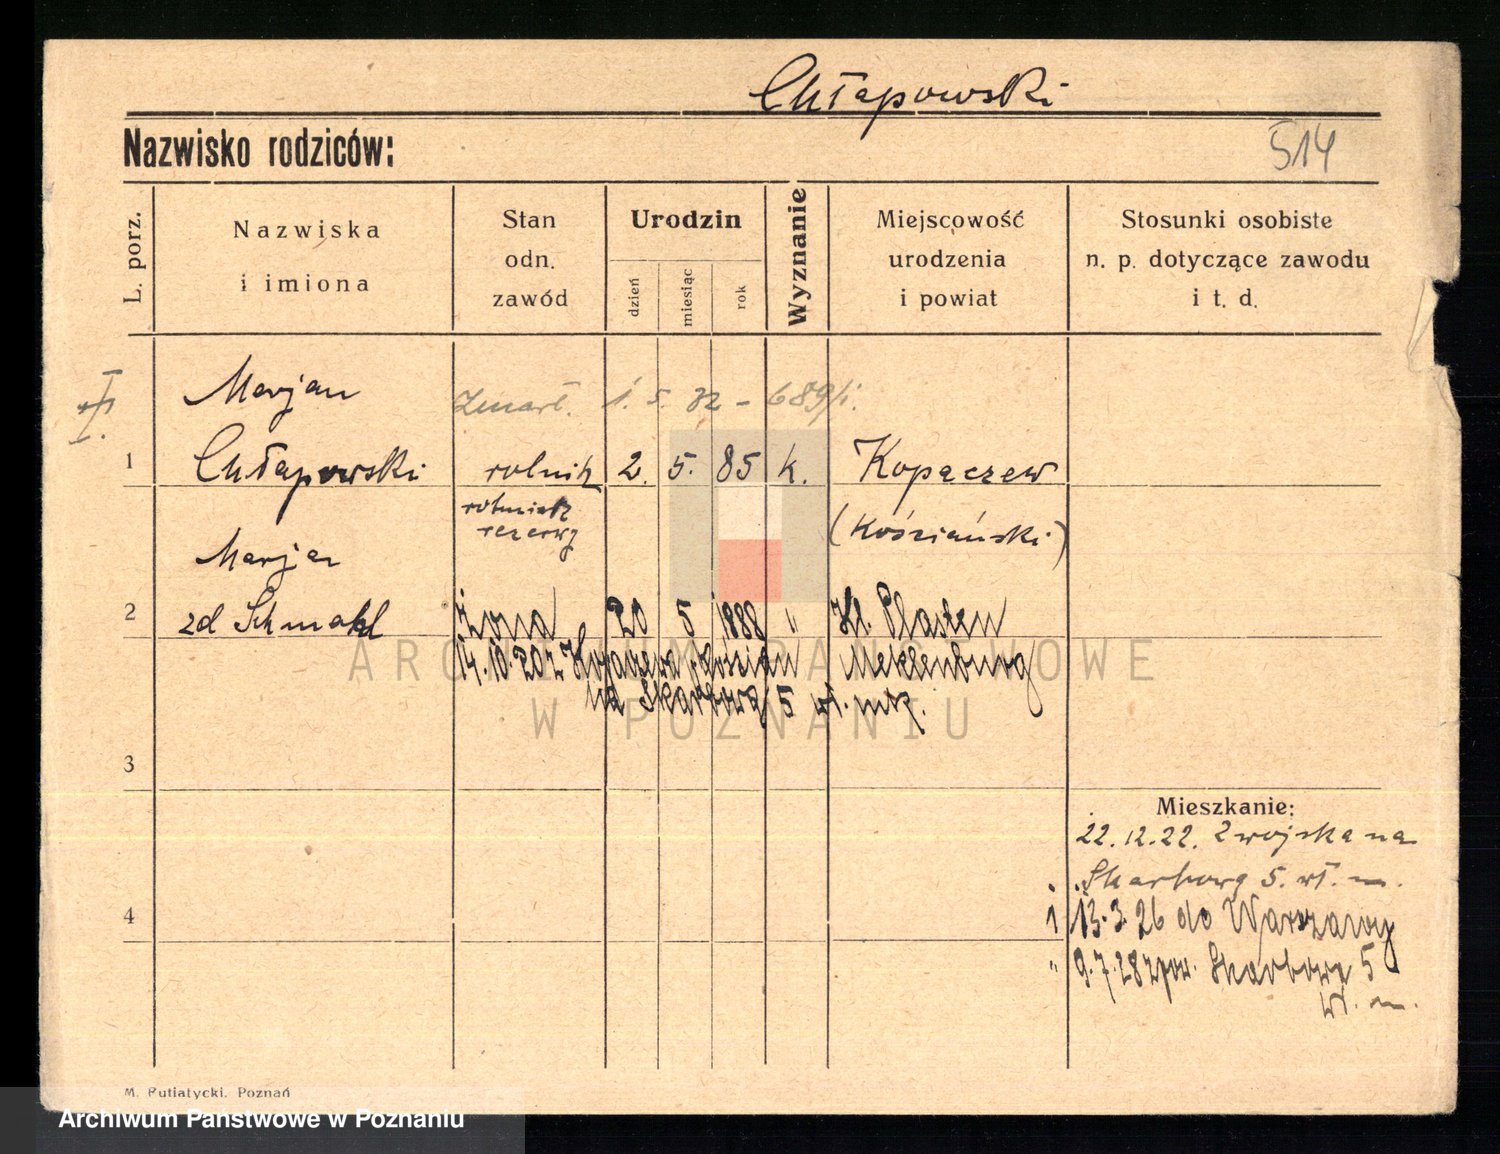 Chłapowski
Nazwisko rodziców:
514
L. porz.
Nazwiska
i imiona
Stan
odn.
zawód
Urodzin
dzień
miesiąc
rok
Wyznanie
Miejscowość
urodzenia
i powiat
Stosunki osobiste
n. p. dotyczące zawodu
i t. d.
Marjan
Zmarł. 1. 5. 32 - 689/i.
1 Chłapowski rolnik 2. 5. 85 k. Kopaczew
rotmistrz
rezerwy
(Kościański)
Marja
2 zd żona 20 5 1888 " Kl. Plasten
14.10.20 z Kopaszewa p. Kościan Meklenburg
na Skarbową 5 wł. mtg.
3
Mieszkanie:
22.12.22. z wojska na
Skarbową 5. wł. m.
4
i 13.3.26 do Warszawy
" 9.7.28 zpow. Skarbowa 5
wł. m.
M. Putiatycki. Poznań
ARCHIWUM PAŃSTWOWE
W POZNANIU
Archiwum Państwowe w Poznaniu